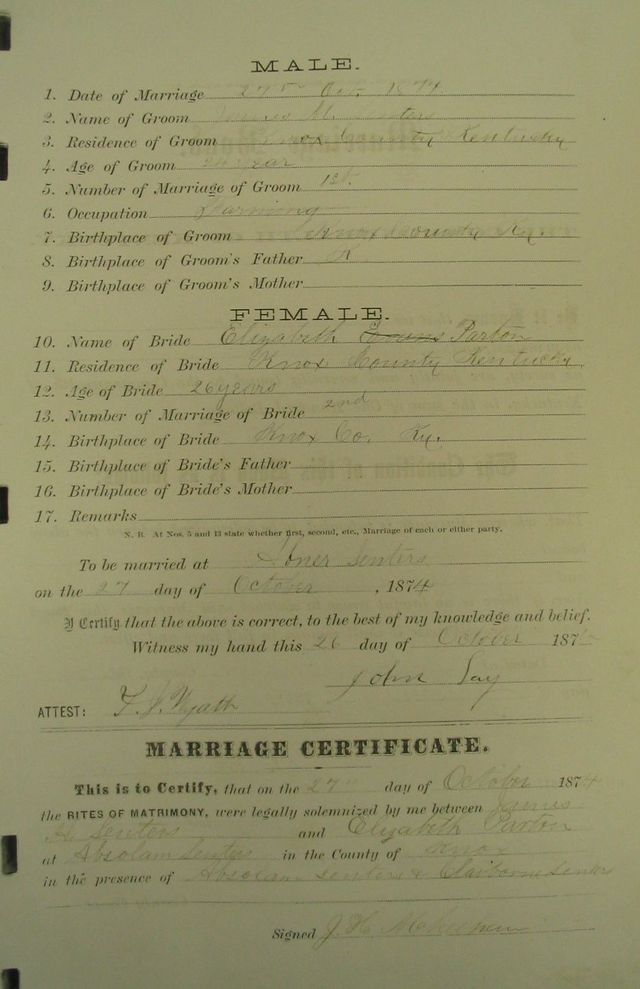 MALE.
1. Date of Marriage 27 Oct. 1874
2. Name of Groom
3. Residence of Groom Knox County Kentucky
4. Age of Groom
5. Number of Marriage of Groom 1st.
6. Occupation Farming
7. Birthplace of Groom Knox County Ky
8. Birthplace of Groom's Father
9. Birthplace of Groom's Mother
FEMALE.
10. Name of Bride Elizabeth Evans Parton
11. Residence of Bride Knox County Kentucky
12. Age of Bride 26 years
13. Number of Marriage of Bride 2nd
14. Birthplace of Bride Knox Co. Ky.
15. Birthplace of Bride's Father
16. Birthplace of Bride's Mother
17. Remarks
N. B. At Nos. 5 and 13 state whether first, second, etc., Marriage of each or either party.
To be married at Abner Senters
on the 27 day of October, 1874
I Certify that the above is correct, to the best of my knowledge and belief.
Witness my hand this 26 day of October 187
John Lay
ATTEST:
MARRIAGE CERTIFICATE.
This is to Certify, that on the 27" day of October 1874
the RITES OF MATRIMONY, were legally solemnized by me between
Senters and Elizabeth Parton
at Absolam Senters in the County of Knox
in the presence of Absolam Senters & Claiborne Senters
Signed J. H.